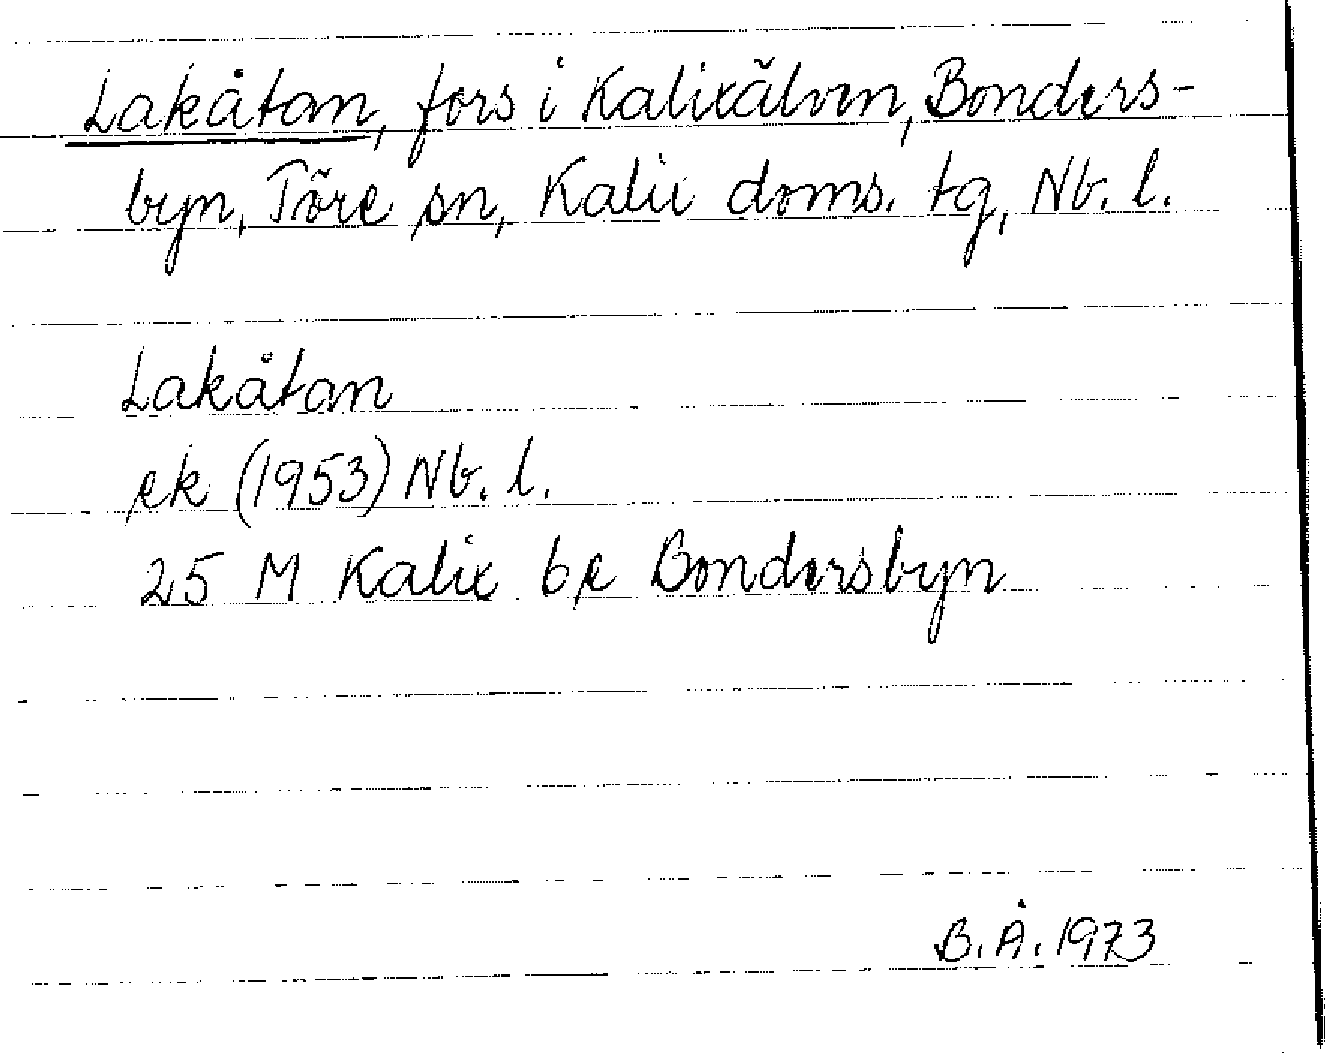 Lakåtan, fors i Kalixälven, Bonders-
byn, Töre sn, Kalix doms. tg, Nb. l.
Lakåtan
ek (1953) Nb. l.
25 M Kalix 6e Bondersbyn
B.Å. 1973